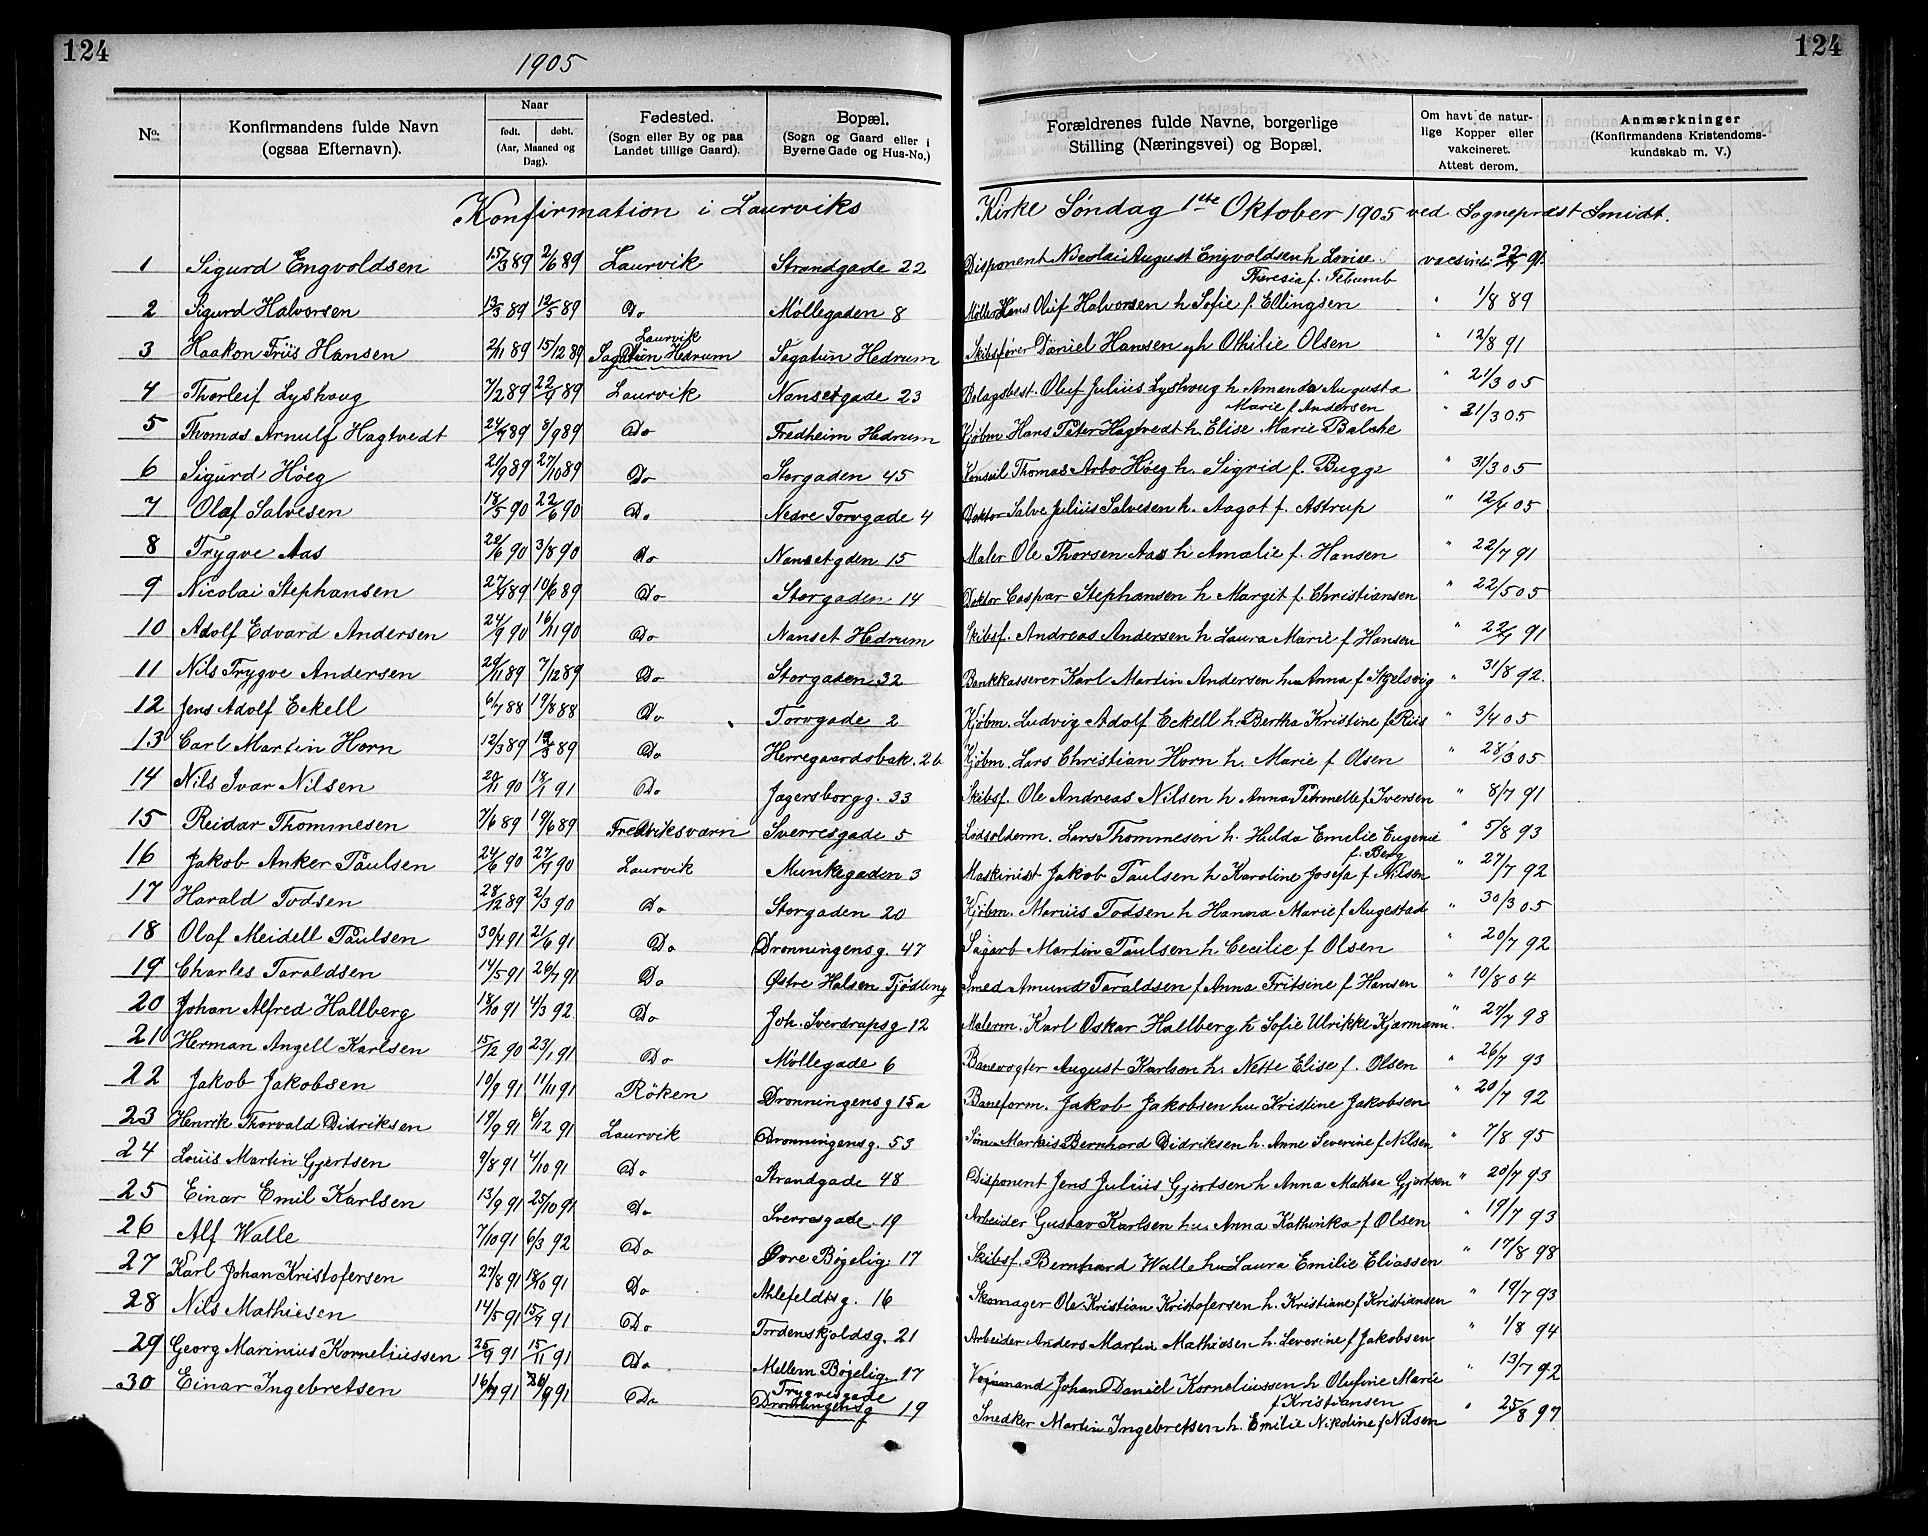 124
124
1905
No.
Konfirmandens fulde Navn
(ogsaa Efternavn).
Naar
født.
døbt.
(Aar, Maaned og Dag).
Fødested.
(Sogn eller By og paa
Landet tillige Gaard).
Bopæl.
(Sogn og Gaard eller i
Byerne Gade og Hus-No.)
Forældrenes fulde Navne, borgerlige
Stilling (Næringsvei) og Bopæl.
Om havt de natur-
lige Kopper eller
vakcineret.
Attest derom.
Anmærkninger
(Konfirmandens Kristendoms-
kundskab m. V.)
Konfirmation i Laurviks Kirke Søndag 1ste Oktober 1905 ved Sognepræst Smidt.
1 Sigurd Engvoldsen 15/3 89 2/6 89 Laurvik Strandgade 22 Disponent Nicolai August Engvoldsen h Lovise
Theresia f.
2 Sigurd Halvorsen 13/3 89 12/5 89 Do Møllegaden 8 Møller Hans Oluf Halvorsen h Sofie f. Ellingsen " 1/8 89
3 Haakon Friis Hansen 2/11 89 15/12 89 Laurvik
Sagatun Hedrum Sagatun Hedrum Skibsfører Daniel Hansen h Othilie Olsen " 12/8 91
4 Thorleif Lyshoug 7/2 89 22/4 89 Laurvik Nansetgade 23 Bolagsbest. Oluf Julius Lyshoug h Amanda Augusta " 21/3 05
Marie f Andersen
5 Thomas Arnulf Hagtvedt 24/4 89 8/9 89 Do Fredheim Hedrum Kjøbm Hans Peter Hagtvedt h. Elise Marie Balche " 21/3 05
6 Sigurd Høeg 21/9 89 27/10 89 Do Storgaden 45 Konsul Thomas Arbo Høeg h. Sigrid f. Bugge " 31/3 05
7 Olaf Salvesen 18/5 90 22/6 90 Do Nedre Torvgade 4 Doktor Salve Julius Salvesen h. Aagot f. Astrup " 12/4 05
8 Trygve Aas 22/6 90 3/8 90 Do Nansetgden 15 Maler Ole Thorsen Aas h Amalie f. Hansen " 22/7 91
9 Nicolai Stephansen 27/4 89 10/6 89 Do Storgaden 14 Doktor Caspar Stephansen h Margit f. Christiansen " 22/5 05
10 Adolf Edvard Andersen 24/9 90 16/11 90 Do Nanset Hedrum Skibsf. Andreas Andersen h Laura Marie f Hansen " 22/7 91
11 Nils Trygve Andersen 20/11 89 7/12 89 Do Storgaden 32 Bankkasserer Karl Martin Andersen hu Anna f Skjelsvig " 31/8 92.
12 Jens Adolf Eckell 6/7 88 19/8 88 Do Torvgade 2 Kjøbm. Ludvig Adolf Eckell h. Bertha Kristine f Riis " 3/4 05
13 Carl Martin Horn 12/3 89 89 Do Herregaardsbak. 2b Kjøbm. Lars Christian Horn h. Marie f Olsen " 28/3 05
14 Nils Ivar Nilsen 20/11 90 18/1 91 Do Jagersborgg. 33 Skibsf. Ole Andreas Nilsen h Anna Petronelle f Iversen " 8/7 91
15 Reidar Thommesen 7/6 89 19/6 89 Fredriksværn Sverresgade 5 Lodsolderm. Lars Thommesen h. Hilda Emelie Eugenie " 5/8 93
f. Berg
16 Jakob Anker Paulsen 24/6 90 27/7 90 Laurvik Munkegaden 3 Maskinist Jakob Paulsen h Karoline Josefa f Nilsen " 27/7 92
17 Harald Todsen 28/12 89 2/3 90 Do Storgaden 20 Kjøbm. Marius Todsen h Hanna Marie f Augestad " 30/3 05
18 Olaf Meidell Paulsen 30/4 91 21/6 91 Do Dronningensg. 47 Sagarb Martin Paulsen h Cecilie f Olsen " 20/7 92
19 Charles Taraldsen 14/5 91 26/7 91 Do Østre Halsen Tjødling Smed Amund Taraldsen f Anna Fritsine f Hansen " 10/8 04
20 Johan Alfred Hallberg 18/10 91 4/3 92 Do Joh. Sverdrupsg 12 Malerm. Karl Oskar Hallberg h Sofie Ulrikke Kjærmann. " 29/7 98
21 Herman Angell Karlsen 15/12 90 23/1 91 Do Møllegade 6 Banevogter August Karlsen h. Nette Elise f. Olsen " 26/7 93
22 Jakob Jakobsen 10/9 91 11/11 91 Röken Dronningensg 15a Baneform. Jakob Jakobsen hu Kristine Jakobsen " 20/7 92
23 Henrik Thorvald Didriksen 19/9 91 6/12 91 Laurvik Dronningensg. 53 Markus Bernhard Didriksen h. Anne Severine f Nilsen " 7/8 95
24 Louis Martin Gjertsen 9/8 91 4/10 91 Do Strandgade 48 Disponent Jens Julius Gjertsen h Anna Mathea Gjertsen " 20/7 93
25 Einar Emil Karlsen 13/9 91 25/10 91 Do Sverresgade 19 Arbeider Gustav Karlsen hu. Anna Kathinka f Olsen " 19/7 93
26 Alf Walle 7/10 91 6/3 92 Do Øvre Bøgelig. 17 Skibsf. Bernhard Walle hu Laura Emilie Eliassen " 17/8 98
27 Karl Johan Kristofersen 27/8 91 18/10 91 Do Ahlefeldtsg. 16 Skomager Ole Kristian Kristofersen h. Kristiane f Kristiansen " 19/7 93
28 Nils Mathiesen 14/5 91 15/7 91 Do Tordenskjoldsg. 21 Arbeider Anders Martin Mathiesen h. Severine f Jakobsen " 1/8 94
29 Georg Marinius Korneliussen 25/9 91 15/11 91 Do Mellem Bøgelig. 17 Vognmand Johan Daniel Korneliussen h Olufine Marie " 13/7 92
f Kristiansen
30 Einar Ingebretsen 16/7 91 91 Do Trygvesgade
Dronningensg 19 Snedker Martin Ingebretsen h. Emilie Nikoline f Nilsen " 25/8 97